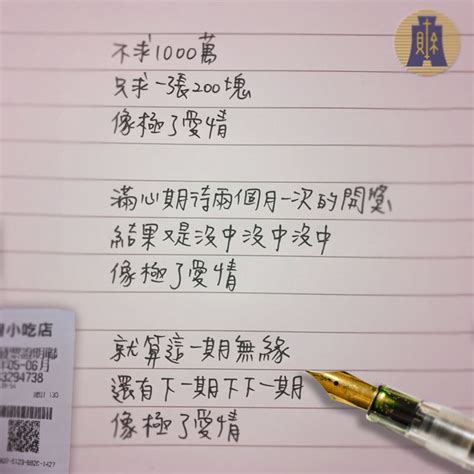 不求1000萬
只求一張200塊
像極了愛情
滿心期待兩個月一次的開獎
結果又是沒中沒中沒中
像極了愛情
小吃店
05-06月
3294738
就算這一期無緣
還有下一期下下一期
像極了愛情